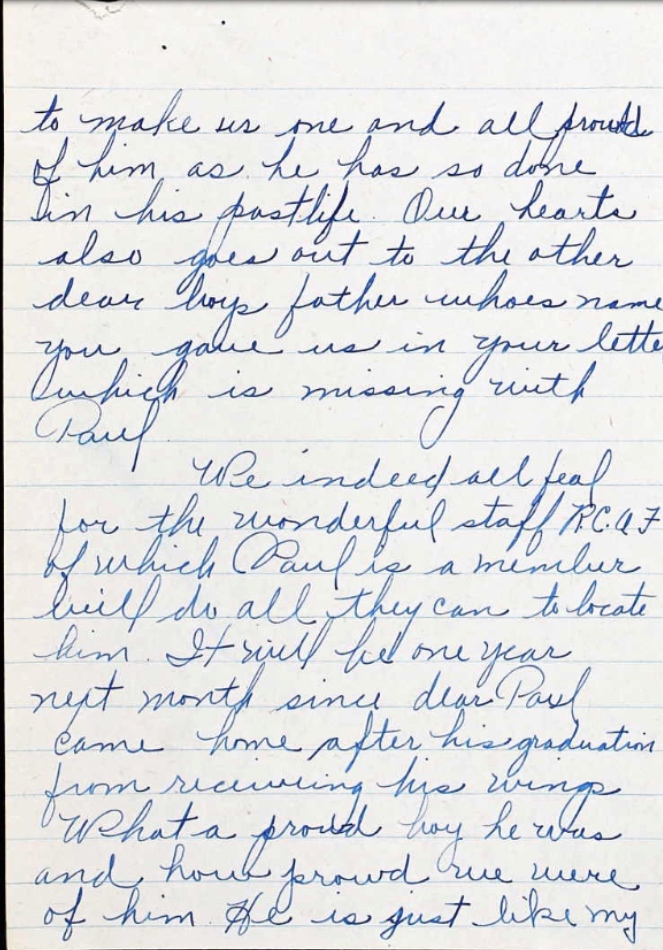 to make us one and all proud
of him as he has so done
in his pastlife. Our hearts
also goes out to the other
dear boys father whoes name
you gave us in your lette
which is missing with
Paul
We indeed all feal
for the wonderful staff R.C.A.F
of which Paul is a member
will do all they can to locate
him. It will be one year
next month since dear Paul
came home after his graduation
from receiveing his wings
What a proud boy he was
and how prowd we were
of him. He is just like my